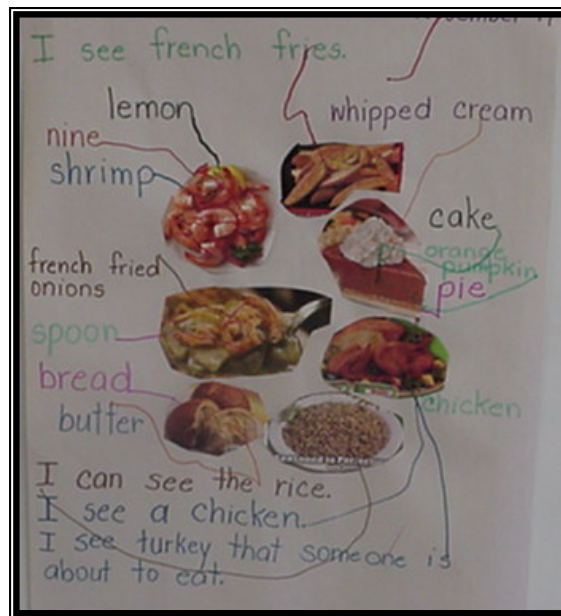 I see french fries.
lemon
whipped cream
nine
shrimp
cake
orange
pumpkin
pie
french fried
onions
spoon
bread
chicken
butter
I can see the rice.
I see a chicken.
I see turkey that someone is
about to eat.